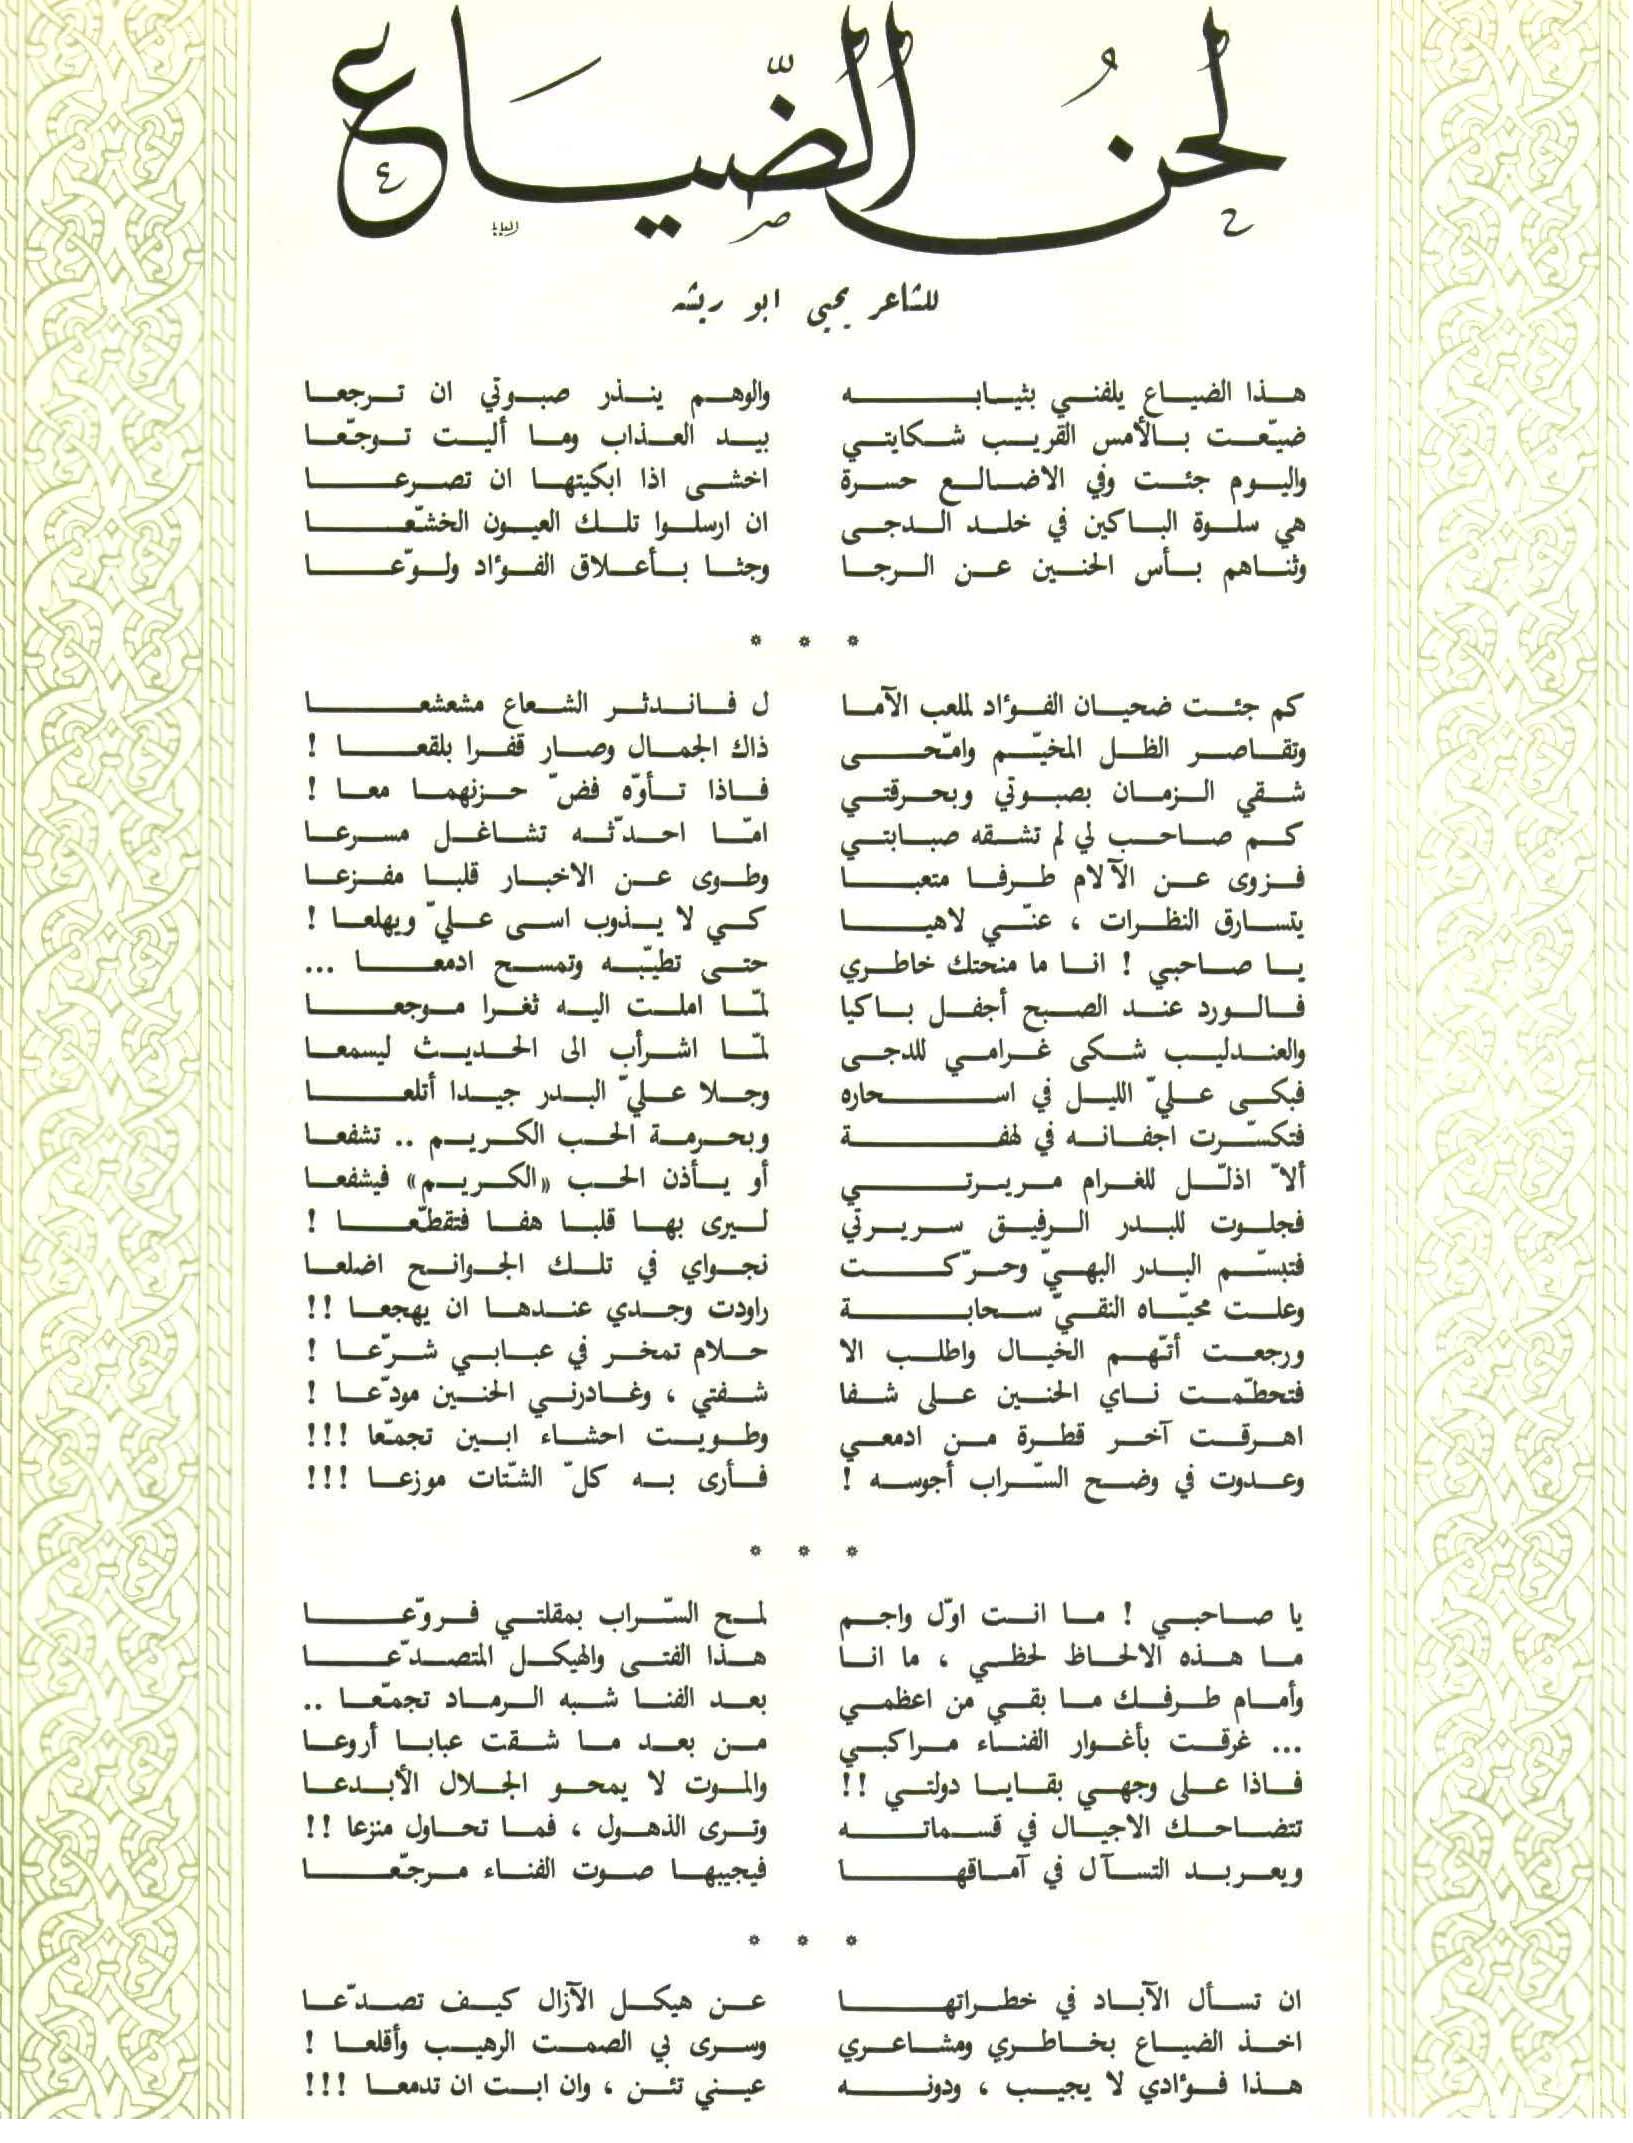 لحن الضياع
للشاعر يحيى ابو ريشه
هذا الضياع يلفني بثيابه والوهم ينذر صبوتي ان ترجعا
ضيّعت بالأمس القريب شكايتي بيد العذاب وما أليت توجّعا
واليوم جئت وفي الاضالع حسرة اخشى اذا ابكيتها ان تصرعا
هي سلوة الباكين في خلد الدجى ان ارسلوا تلك العيون الخشّعا
وثناهم بأس الحنين عن الرجا وجثا بأعلاق الفؤاد ولوّعا
* * *
كم جئت ضحيان الفؤاد لملعب الآما ل فاندثر الشعاع مشعشعا
وتقاصر الظل المخيّم وامّحى ذاك الجمال وصار قفرا بلقعا !
شقي الزمان بصبوتي وبحرقتي فاذا تأوّه فضّ حزنهما معا !
كم صاحب لي لم تشقه صبابتي امّا احدّثه تشاغل مسرعا
فزوى عن الآلام طرفا متعبا وطوى عن الاخبار قلبا مفزعا
يتسارق النظرات ، عنّي لاهيا كي لا يذوب اسى عليّ ويهلعا !
يا صاحبي ! انا ما منحتك خاطري حتى تطيّبه وتمسح ادمعا ...
فالورد عند الصبح أجفل باكيا لمّا املت اليه ثغرا موجعا
والعندليب شكى غرامي للدجى لمّا اشرأب الى الحديث ليسمعا
فبكى عليّ الليل في اسحاره وجلا عليّ البدر جيدا أتلعا
فتكسّرت اجفانه في لهفة وبحرمة الحب الكريم .. تشفعا
ألاّ اذلّل للغرام مريرتي أو يأذن الحب «الكريم» فيشفعا
فجلوت للبدر الرفيق سريرتي ليرى بها قلبا هفا فتقطّعا !
فتبسّم البدر البهيّ وحرّكت نجواي في تلك الجوانح اضلعا
وعلت محيّاه النقيّ سحابة راودت وجدي عندها ان يهجعا !!
ورجعت أتّهم الخيال واطلب الا حلام تمخر في عبابي شرّعا !
فتحطّمت ناي الحنين على شفا شفتي ، وغادرني الحنين مودّعا !
اهرقت آخر قطرة من ادمعي وطويت احشاء ابين تجمّعا !!!
وعدوت في وضح السّراب أجوسه ! فأرى به كلّ الشّتات موزعا !!!
* * *
يا صاحبي ! ما انت اوّل واجم لمح السّراب بمقلتي فروّعا
ما هذه الالحاظ لحظي ، ما انا هذا الفتى والهيكل المتصدّعا
وأمام طرفك ما بقي من اعظمي بعد الفنا شبه الرماد تجمّعا ..
... غرقت بأغوار الفناء مراكبي من بعد ما شقت عبابا أروعا
فاذا على وجهي بقايا دولتي !! والموت لا يمحو الجلال الأبدعا
تتضاحك الاجيال في قسماته وترى الذهول ، فما تحاول منزعا !!
ويعربد التسآل في آماقها فيجيبها صوت الفناء مرجّعا
* * *
ان تسأل الآباد في خطراتها عن هيكل الآزال كيف تصدّعا
اخذ الضياع بخاطري ومشاعري وسرى بي الصمت الرهيب وأقلعا !
هذا فؤادي لا يجيب ، ودونه عيني تئن ، وان ابت ان تدمعا !!!